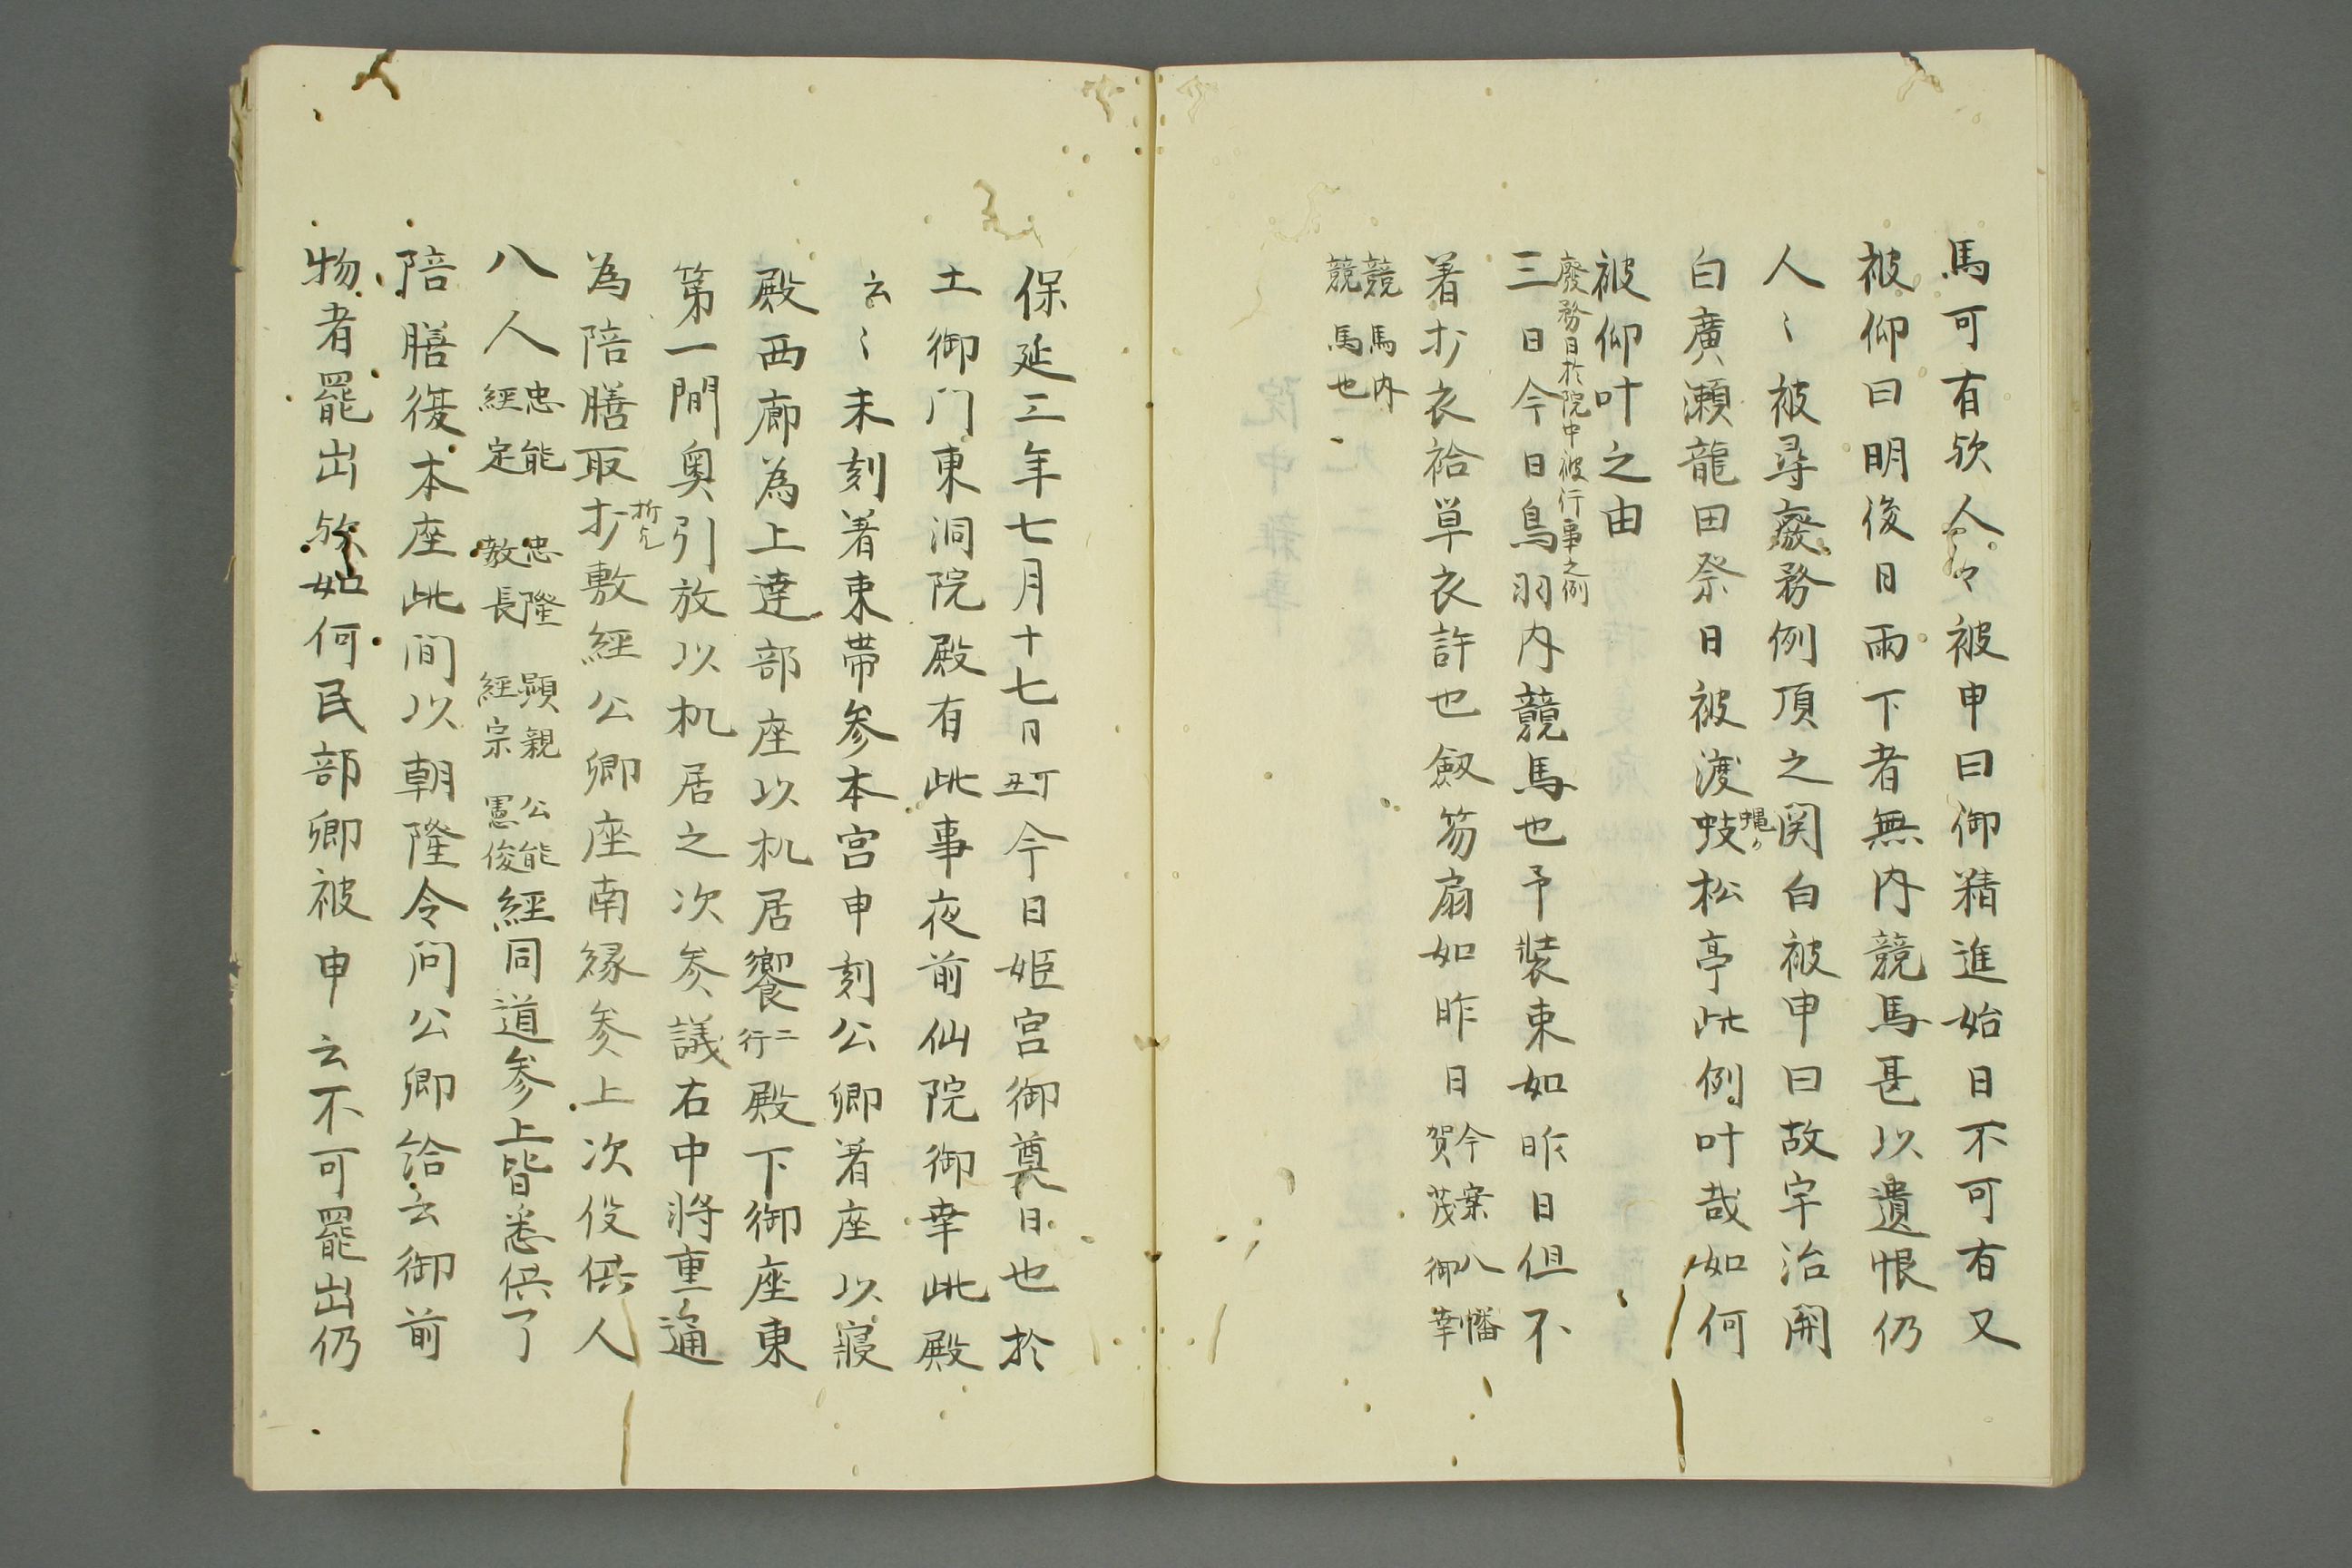 馬可有欤人々被申曰御精進始日不可有又
被仰曰明後日雨下者無内競馬甚以遺恨仍
人〻被尋廢務例頂之関白被申曰故宇治関
白廣瀬龍田祭日被渡蚑松亭此例叶哉如何
被仰叶之由
廢務日於院中被行事之例
三日今日鳥羽内競馬也予装束如昨日但不
着打衣袷単衣許也劔笏扇如昨日今案八幡賀茂御幸
競馬内競馬也
保延三年七月十七日丁丑今日姫宮御奠日也於
土御门東洞院殿有此事夜前仙院御幸此殿
云〻未刻着束帯参本宮申刻公卿着座以寝
殿西廊為上達部座以机居饗二行殿下御座東
第一間奥引放以机居之次参議右中将重通
為陪膳取打敷経公卿座南縁参上次役供人
八人忠能経定忠隆教長顕親経宗公能憲俊経同道参上皆悉供了
陪膳復本座此间以朝隆令问公卿給云御前
物者罷出欤如何民部卿被申云不可罷出仍